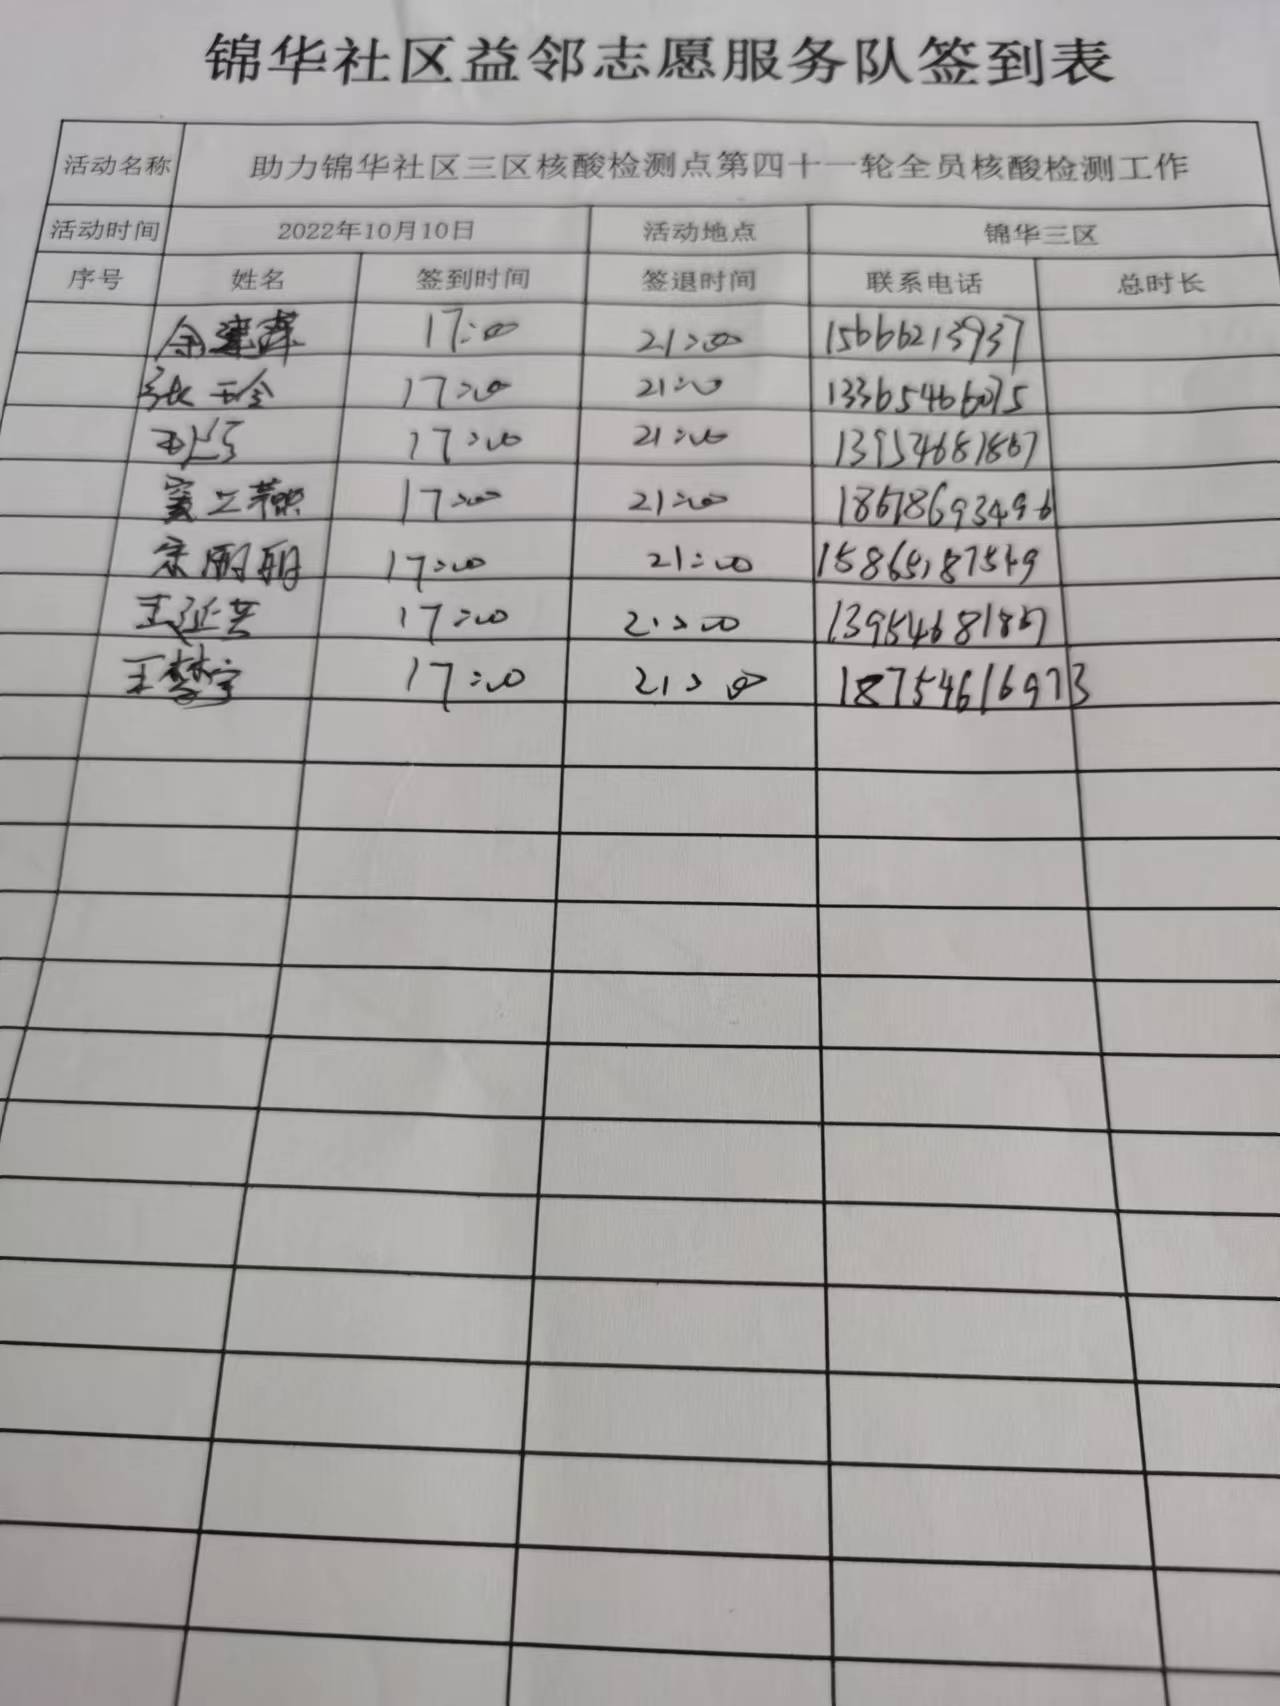 锦华社区益邻志愿服务队签到表
活动名称 助力锦华社区三区核酸检测点第四十一轮全员核酸检测工作
活动时间 2022年10月10日 活动地点 锦华三区
序号 姓名 签到时间 签退时间 联系电话 总时长
17:00 21:00 15666213937
张玲 17:00 21:00 13365466075
17:00 21:00 13954681867
17:00 21:00 18678693496
宋丽娟 17:00 21:00
王延芸 17:00 21:00 13954681867
王梦宇 17:00 21:00 18754616973